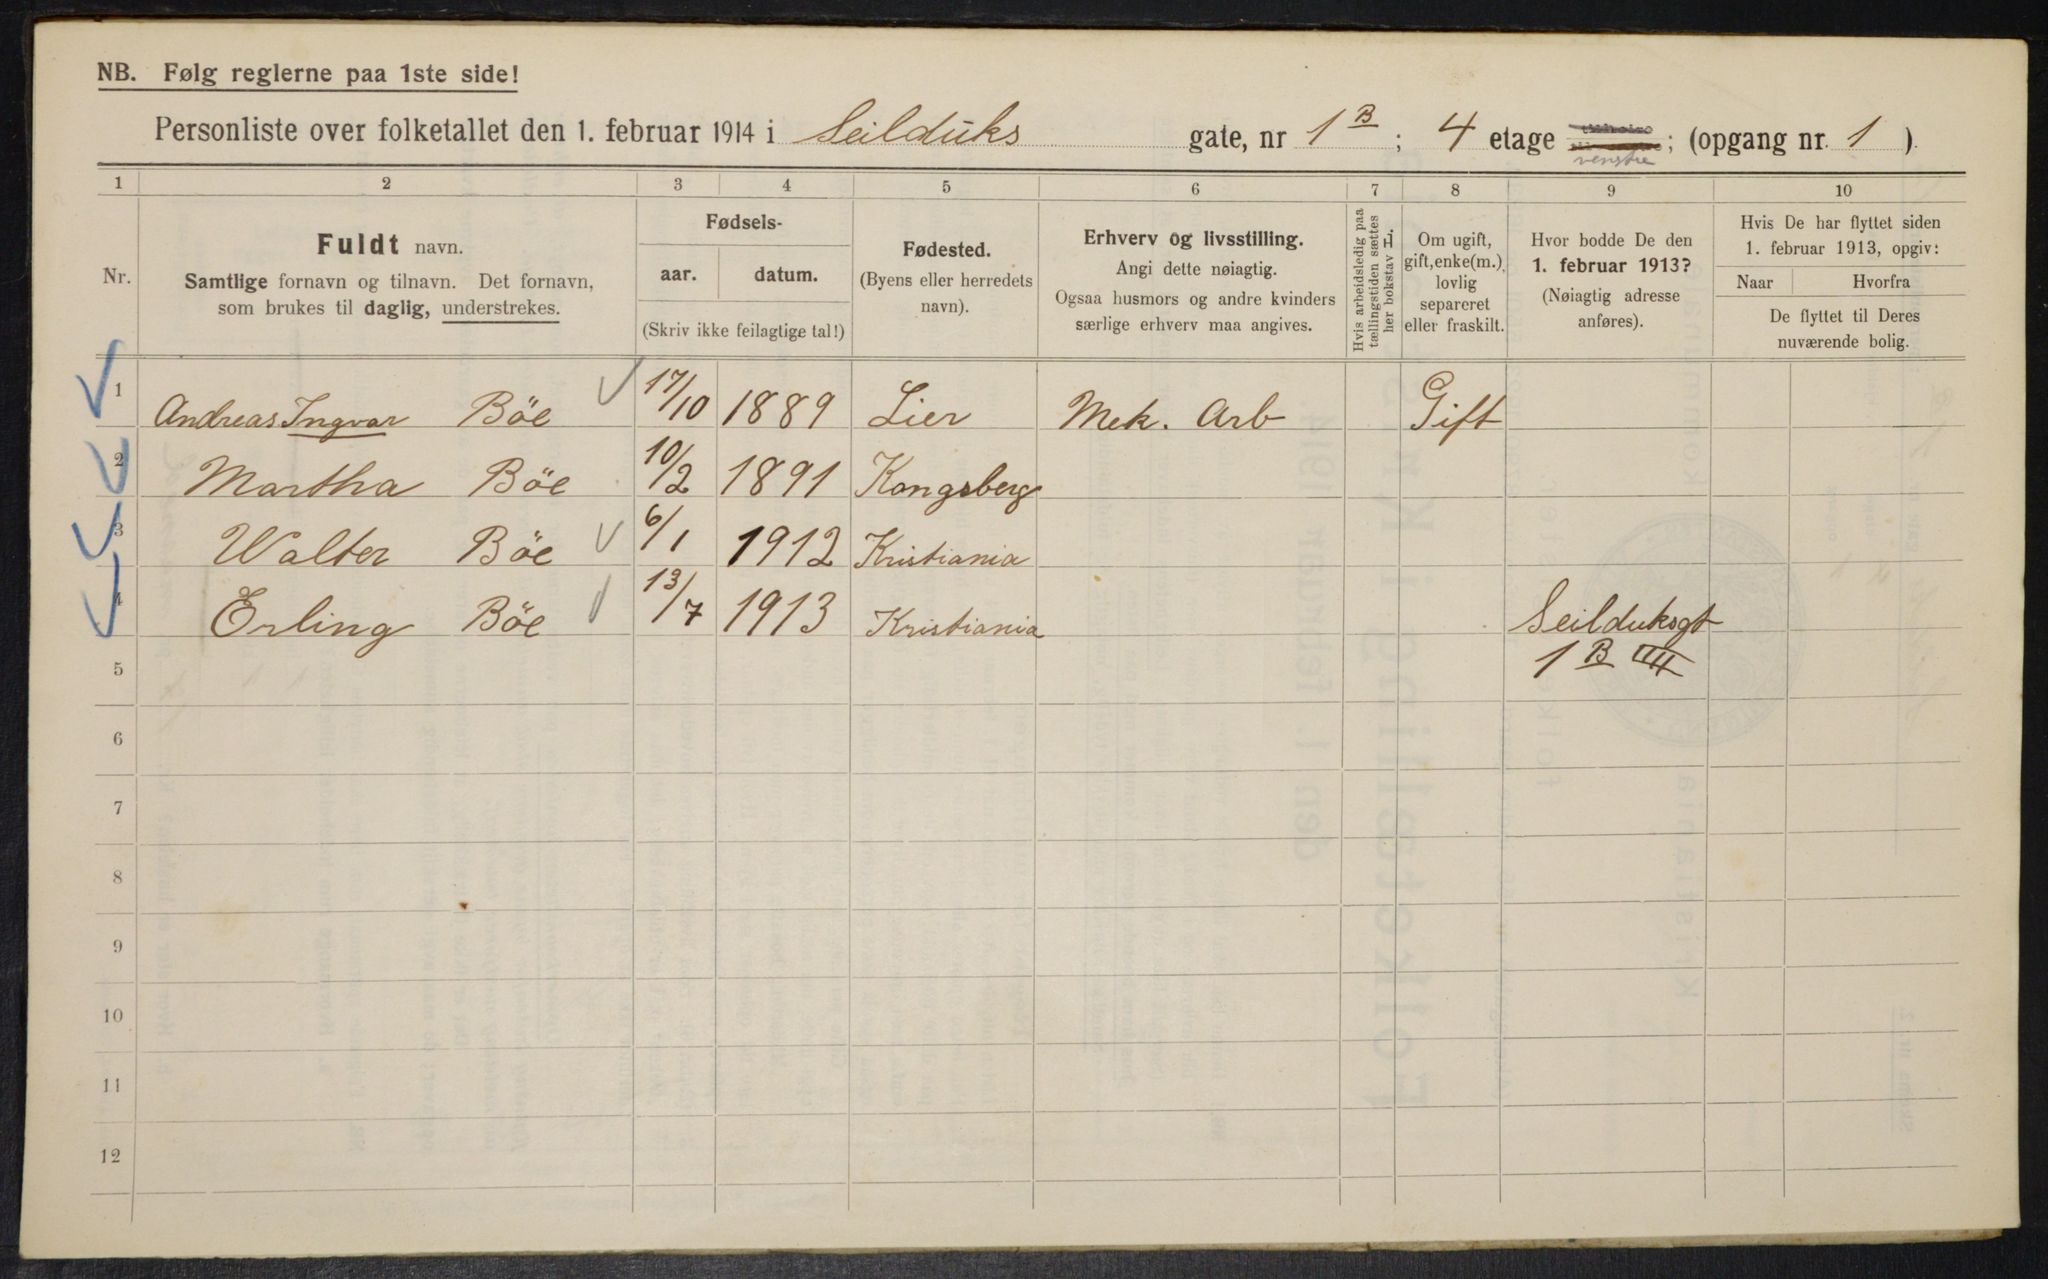 NB. Følg reglerne paa 1ste side!
Personliste over folketallet den 1. februar 1914 i Seilduks gate, nr 1 B ; 4 etage venstre ; (opgang nr. 1 )
1 2 3 4 5 6 7 8 9 10
Nr.
Fuldt navn.
Samtlige fornavn og tilnavn. Det fornavn,
som brukes til daglig, understrekes.
Fødsels-
aar. datum.
(Skriv ikke feilagtige tal!)
Fødested.
(Byens eller herredets
navn).
Erhverv og livsstilling.
Angi dette nøiagtig.
Ogsaa husmors og andre kvinders
særlige erhverv maa angives.
Hvis arbeidsledig paa
tællingstiden sættes
her bokstav L.
Om ugift,
gift, enke(m.),
lovlig
separeret
eller fraskilt.
Hvor bodde De den
1. februar 1913?
(Nøiagtig adresse
anføres).
Hvis De har flyttet siden
1. februar 1913, opgiv:
Naar Hvorfra
De flyttet til Deres
nuværende bolig.
1 Andreas Ingvar Böe 17/10 1889 Lier Mek. Arb Gift
2 Martha Böe 10/2 1891 Kongsberg
3 Walter Böe 6/1 1912 Kristiania
4 Erling Böe 13/7 1913 Kristiania Seilduksgt
5 1 B IIII
6
7
8
9
10
11
12